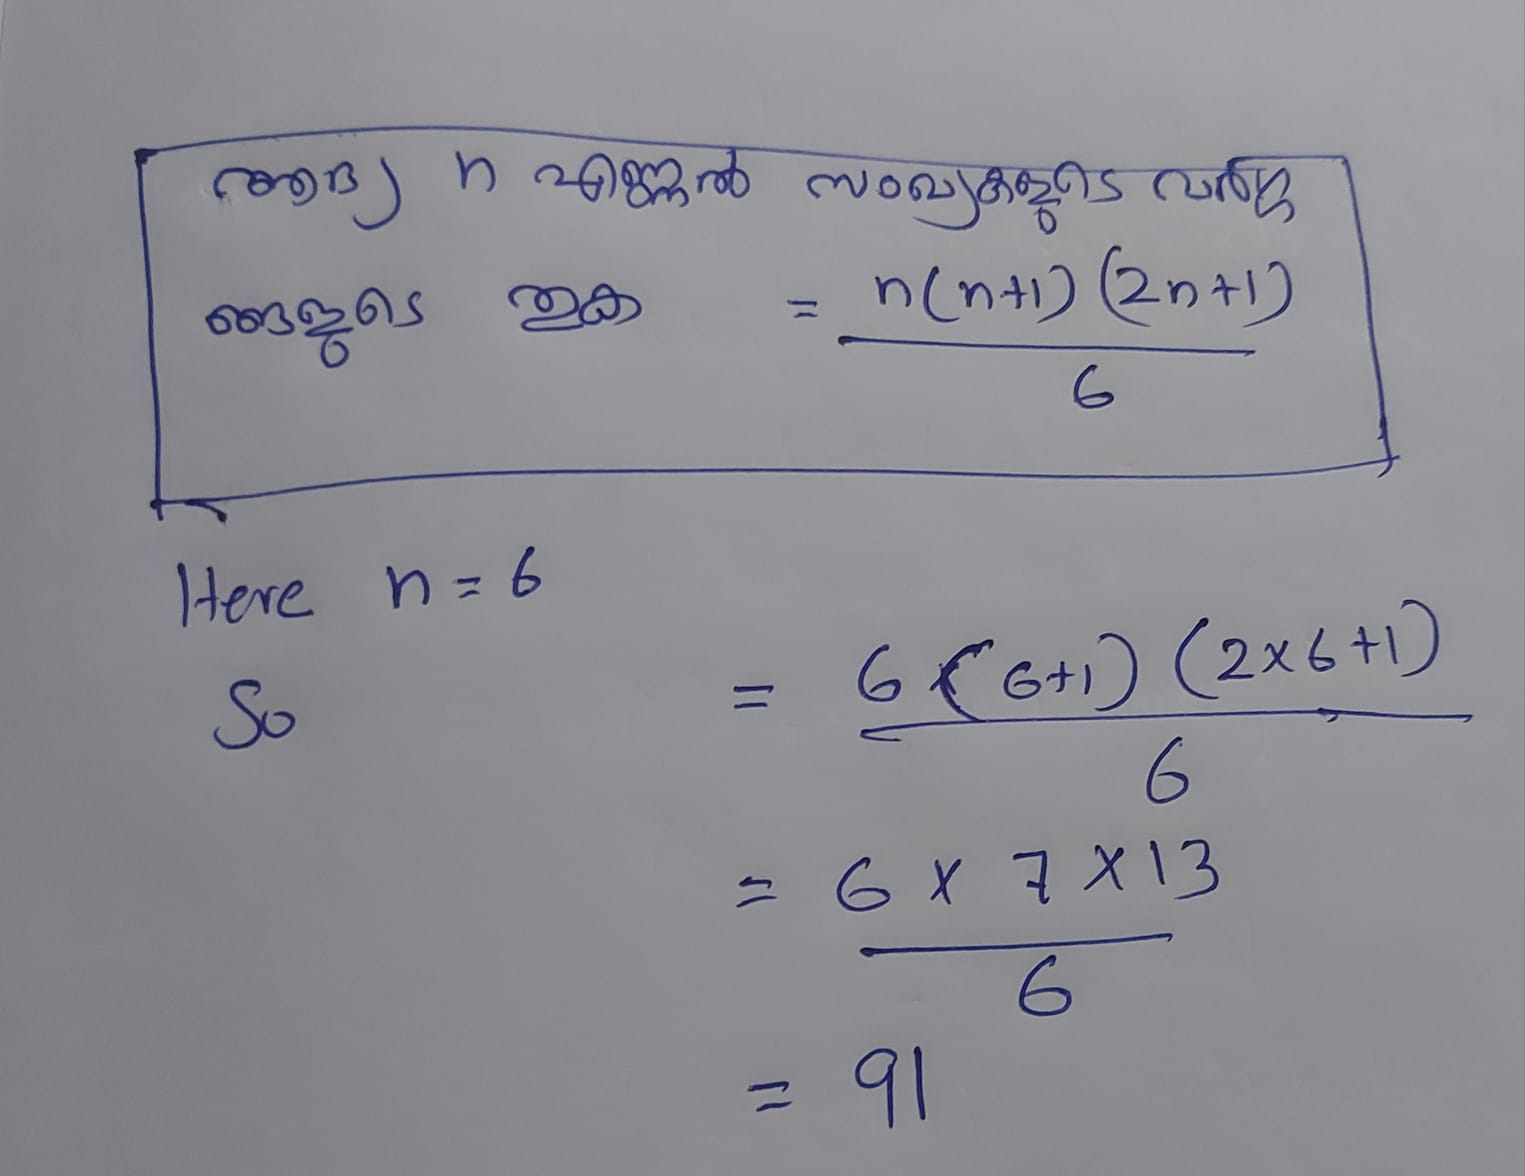 ആദ്യ n എണ്ണൽ സംഖ്യകളുടെ വർഗ്ഗ
ങ്ങളുടെ തുക = n(n+1)(2n+1)
6
Here n = 6
So = 6(6+1)(2×6+1)
6
= 6 × 7 × 13
6
= 91